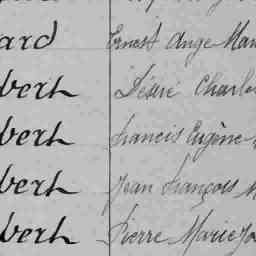 ard Ernest Ange Mar
bert Désiré Charle
bert Francis Eugène
bert Jean François M
bert Pierre Marie Jo